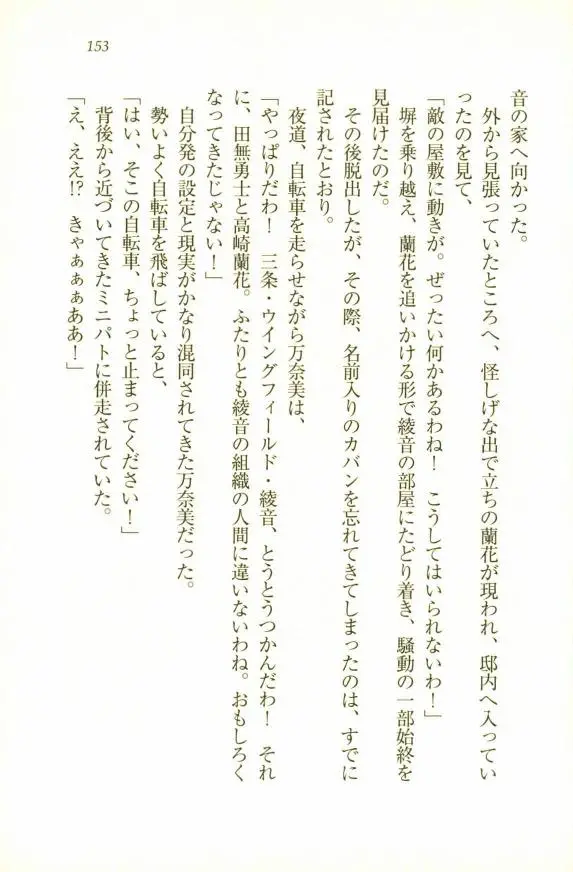 153
音の家へ向かった。
　外から見張っていたところへ、怪しげな出で立ちの蘭花が現われ、邸内へ入ってい
ったのを見て、
「敵の屋敷に動きが。ぜったい何かあるわね！　こうしてはいられないわ！」
　塀を乗り越え、蘭花を追いかける形で綾音の部屋にたどり着き、騒動の一部始終を
見届けたのだ。
　その後脱出したが、その際、名前入りのカバンを忘れてきてしまったのは、すでに
記されたとおり。
　夜道、自転車を走らせながら万奈美は、
「やっぱりだわ！　三条・ウイングフィールド・綾音、とうとうつかんだわ！　それ
に、田無勇士と高崎蘭花。ふたりとも綾音の組織の人間に違いないわね。おもしろく
なってきたじゃない！」
　自分発の設定と現実がかなり混同されてきた万奈美だった。
　勢いよく自転車を飛ばしていると、
「はい、そこの自転車、ちょっと止まってください！」
　背後から近づいてきたミニパトに併走されていた。
「え、ええ!?　きゃぁぁぁああ！」